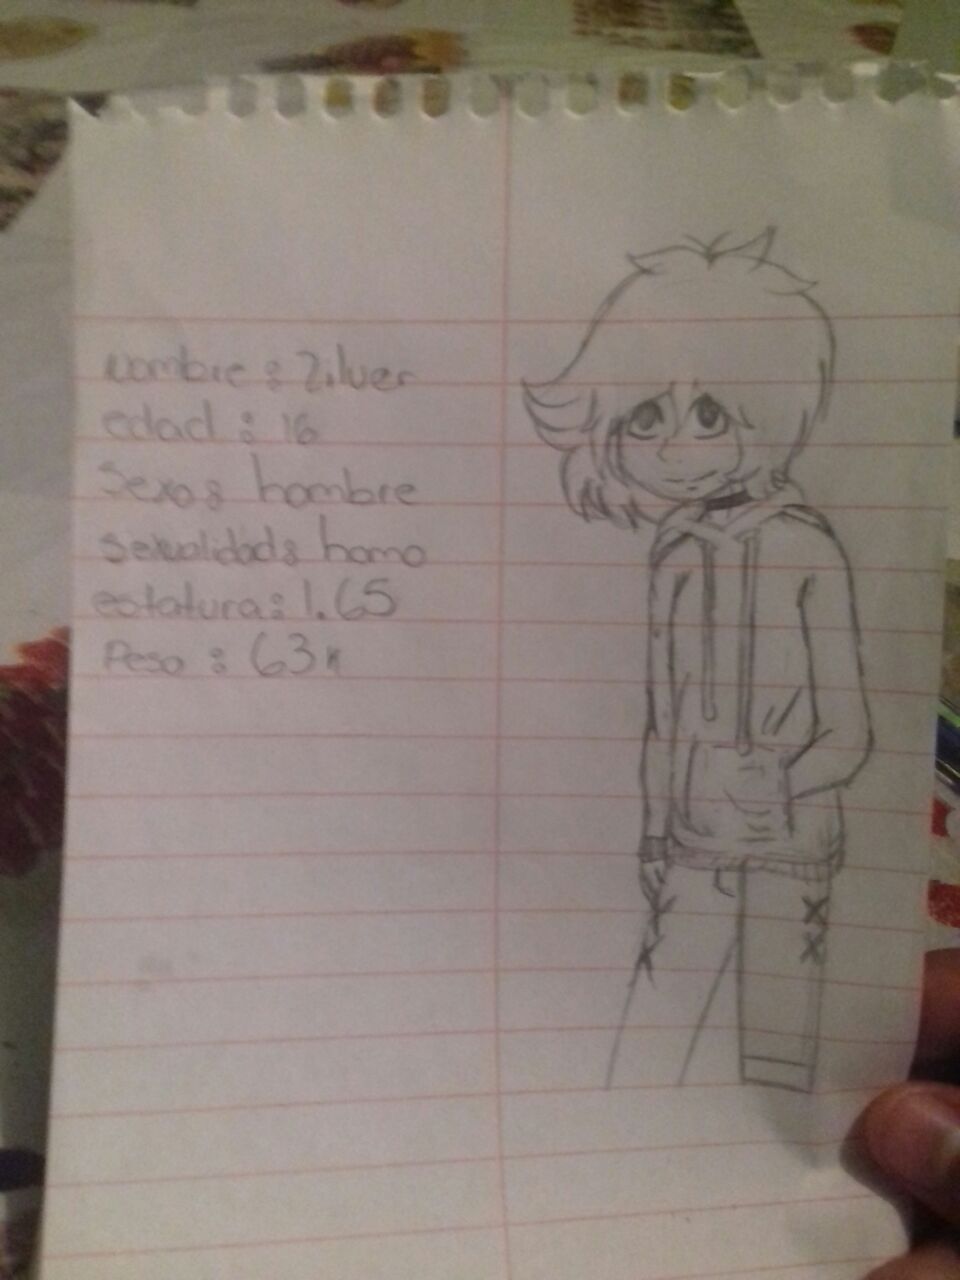 nombre : Zilver
edad : 16
Sexo : hombre
sexualidad : homo
estatura : 1.65
Peso : 63k